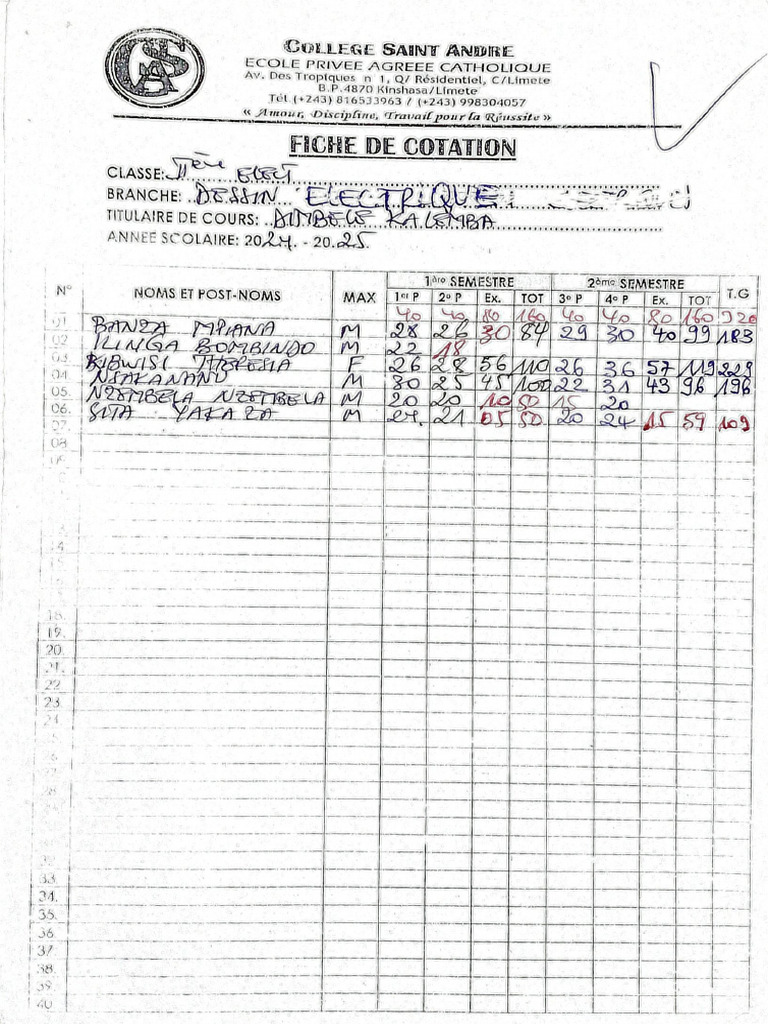 COLLEGE SAINT ANDRE
ECOLE PRIVEE AGREEE CATHOLIQUE
Av. Des Tropiques n 1, Q/ Résidentiel, C/Limete
B.P.4870 Kinshasa/Limete
Tél (+243) 816533963 / (+243) 998304057
« Amour, Discipline, Travail pour la Réussite »
FICHE DE COTATION
CLASSE: IIème ELECT
BRANCHE: DESSIN ELECTRIQUE
TITULAIRE DE COURS: DIMBELE KALEMBA
ANNEE SCOLAIRE: 2024 - 2025
N° NOMS ET POST-NOMS MAX 1ère SEMESTRE 2ème SEMESTRE T.G
1er P 2e P Ex. TOT 3e P 4e P Ex. TOT
40 40 80 160 40 40 80 160 320
01 BANZA MPIANA M 28 26 30 84 29 30 40 99 183
02 ILINGA BOMBINDO M 22 18
03 KIBWISI THERESIA F 26 28 56 110 26 36 57 119 229
04 NSAKANANU M 30 25 45 100 22 31 43 96 196
05. NZEMBELA NZEMBELA M 20 20 10 50 15 20
06. SITA YAKAZA M 24. 21 05 50 20 24 15 59 109
07.
08
09
14
18.
19.
20.
21.
22
23
24
28
33.
34.
35.
36
37
38.
39.
40